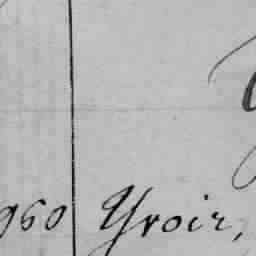 960 Yvoir,